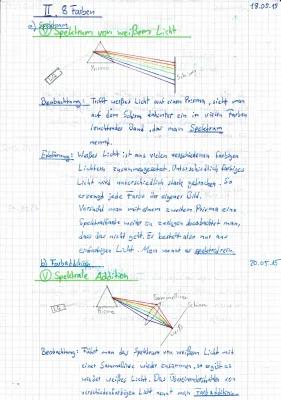 II 8 Farben
18.05.15
a) Spektrum
V Spektrum von weißem Licht
Prisma
Schirm
LQ
Beobachtung: Trifft weißes Licht auf einen Prisma, sieht man
auf dem Schirm dahinter ein in vielen Farben
leuchtendes Band, das man Spektrum
nennt.
Erklärung: Weißes Licht ist aus vielen verschiedenen farbigen
Lichtern zusammengesetzt. Unterschiedlich farbiges
Licht wird unterschiedlich stark gebrochen. So
erzeugt jede Farbe ihr eigenes Bild.
Versucht man mit einem zweitem Prisma eine
Spektralfarbe weiter zu zerlegen beobachtet man,
dass das nicht geht. Er besteht also nur aus
einfarbigen Licht. Man nennt es spektralrein.
b) Farbaddition
20.05.15
V Spektrale Addition
LQ
Prisma
Sammellinse
Schirm
weiß
Beobachtung: Führt man das Spektrum von weißem Licht mit
einer Sammellinse wieder zusammen, so ergibt es
wieder weißes Licht. Das Übereinanderhalten von
verschiedenfarbigen Licht nennt man Farbaddition.